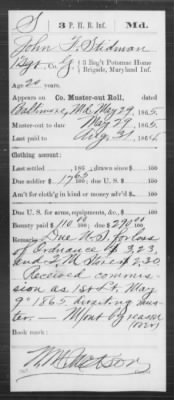 S 3 P. H. B. Inf. Md.
John F. Stidman
Sgt., Co. G, 3 Reg't Potomac Home Brigade, Maryland Inf.
Age 20 years.
Appears on
Co. Muster-out Roll, dated
Baltimore, Md. May 29, 1865.
Muster-out to date May 29, 1865.
Last paid to Aug. 31, 1864.
Clothing account:
Last settled , 186 ; drawn since $
Due soldier $ 17 65/100; due U. S. $
Am't for cloth'g in kind or money adv'd $
Due U. S. for arms, equipments, &c., $
Bounty paid $ 110 00/100; due $ 290 00/100
Remarks: Due U.S. for loss
of Ordnance 3.23,
and Q.M. Stores 2.30
Received commis-
sion as 1st Lt. May
9" 1865.
ter. — M/out by reason
Book mark: